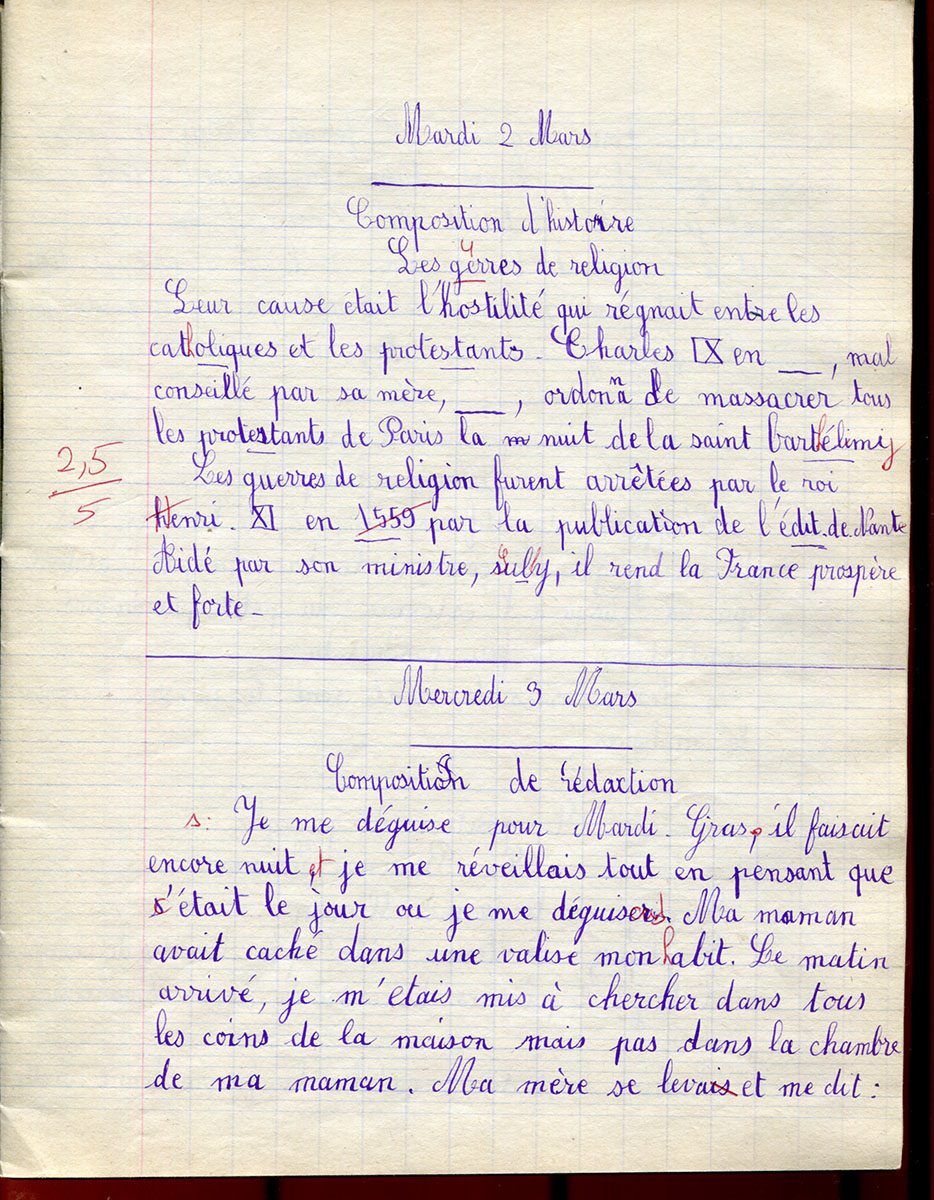 Mardi 2 Mars
Composition d'histoire
Les gérres de religion
Leur cause était l'hostilité qui régnait entre les
catholiques et les protestants. Charles IX en ___, mal
conseillé par sa mère, ___, ordonna de massacrer tous
les protestants de Paris la nuit de la saint barthélimy
2,5
5
Les guerres de religion furent arrêtées par le roi
Henri. XI en 1559 par la publication de l'édit.de.Nante
Aidé par son ministre, Sully, il rend la France prospère
et forte.
Mercredi 3 Mars
Composition de rédaction
s: Je me déguise pour Mardi. Gras, il faisait
encore nuit et je me réveillais tout en pensant que
s'était le jour ou je me déguiserais. Ma maman
avait caché dans une valise mon habit. Le matin
arrivé, je m'étais mis à chercher dans tous
les coins de la maison mais pas dans la chambre
de ma maman. Ma mère se levais et me dit :